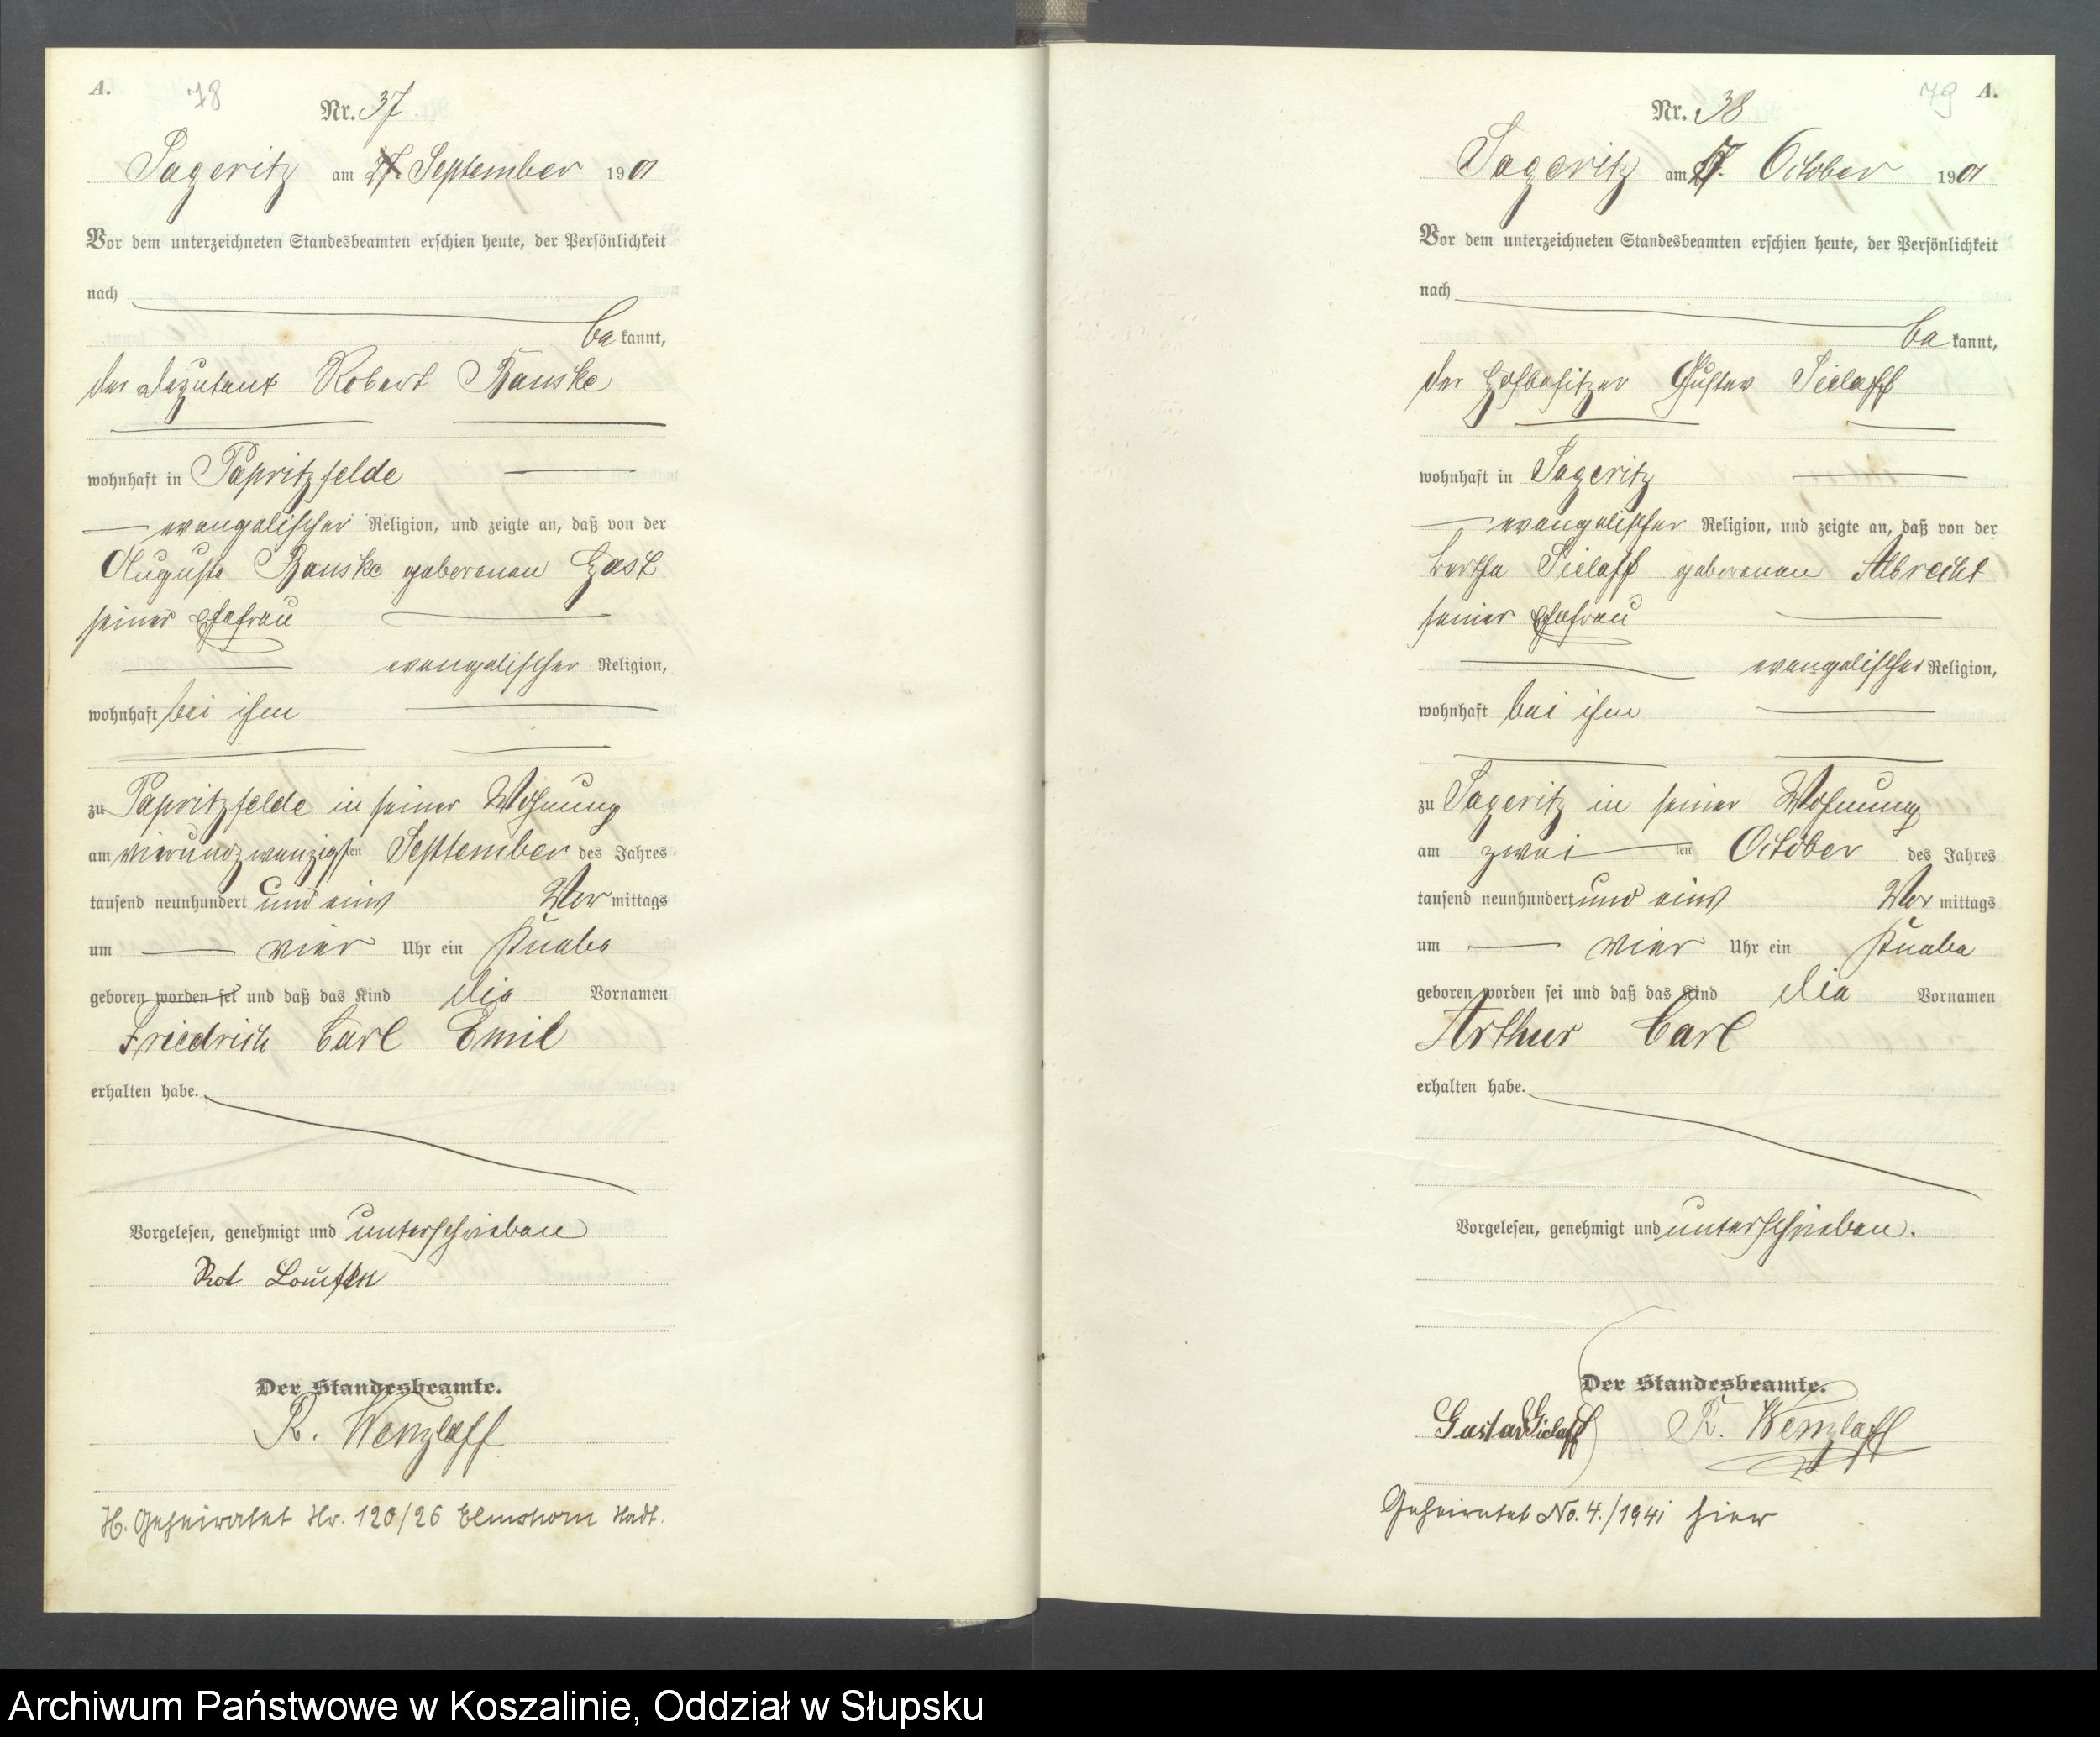 A.
78
Nr. 37
Sageritz am 27. September 1901
Vor dem unterzeichneten Standesbeamten erschien heute, der Persönlichkeit
nach
bekannt,
der Deputant Robert Banske
wohnhaft in Papritzfelde
evangelischer Religion, und zeigte an, daß von der
Auguste Banske geborenen Gast
seiner Ehefrau
evangelischer Religion,
wohnhaft bei ihm
zu Papritzfelde in seiner Wohnung
am vierundzwanzigsten September des Jahres
tausend neunhundert und eins Vormittags
um vier Uhr ein Knabe
geboren worden sei und daß das Kind die Vornamen
Friedrich Carl Emil
erhalten habe.
Vorgelesen, genehmigt und unterschrieben
Rot
Der Standesbeamte.
R. Wenzlaff
H. Geheiratet Nr. 120/26 Elmshorn
79
A.
Nr. 38
Sageritz am October 1901
Vor dem unterzeichneten Standesbeamten erschien heute, der Persönlichkeit
nach
bekannt,
der Hofbesitzer Gustav Sielaff
wohnhaft in Sageritz
evangelischer Religion, und zeigte an, daß von der
Bertha Sielaff geborenen Albrecht
seiner Ehefrau
evangelischer Religion,
wohnhaft bei ihm
zu Sageritz in seiner Wohnung
am zweiten October des Jahres
tausend neunhundert und eins Vormittags
um vier Uhr ein Knabe
geboren worden sei und daß das Kind die Vornamen
Arthur Carl
erhalten habe.
Vorgelesen, genehmigt und unterschrieben.
Der Standesbeamte.
Gustav Sielaff R. Wenzlaff
Geheiratet No. 4./1941 hier
Archiwum Państwowe w Koszalinie, Oddział w Słupsku